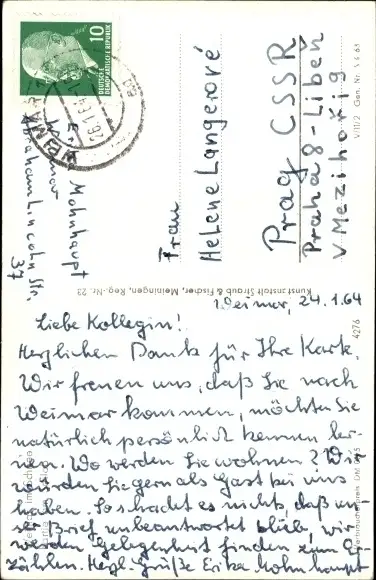 10
DEUTSCHE
DEMOKRATISCHE REPUBLIK
WEIMAR
26.1.64
E. u. K. Mohnhaupt
Weimar
Abraham Lincoln Str.
37
Frau
Helene Langerové
Prag CSSR
Praha 8 - Libeň
V Mezihoří 9
V/11/2 Gen. Nr. S 4 63
Kunstanstalt Straub & Fischer, Meiningen, Reg.-Nr. 23
4276
Weimar, 24.1.64
Liebe Kollegin!
Herzlichen Dank für Ihre Karte.
Wir freuen uns, daß Sie nach
Weimar kommen, möchten Sie
natürlich persönlich kennen ler-
nen. Wo werden Sie wohnen? Wir
würden Sie gern als Gast bei uns
haben. So schadet es nichts, daß un-
ser Brief unbeantwortet blieb, wir
werden Gelegenheit finden zum Er-
zählen. Herzl. Grüße Erika Mohnhaupt